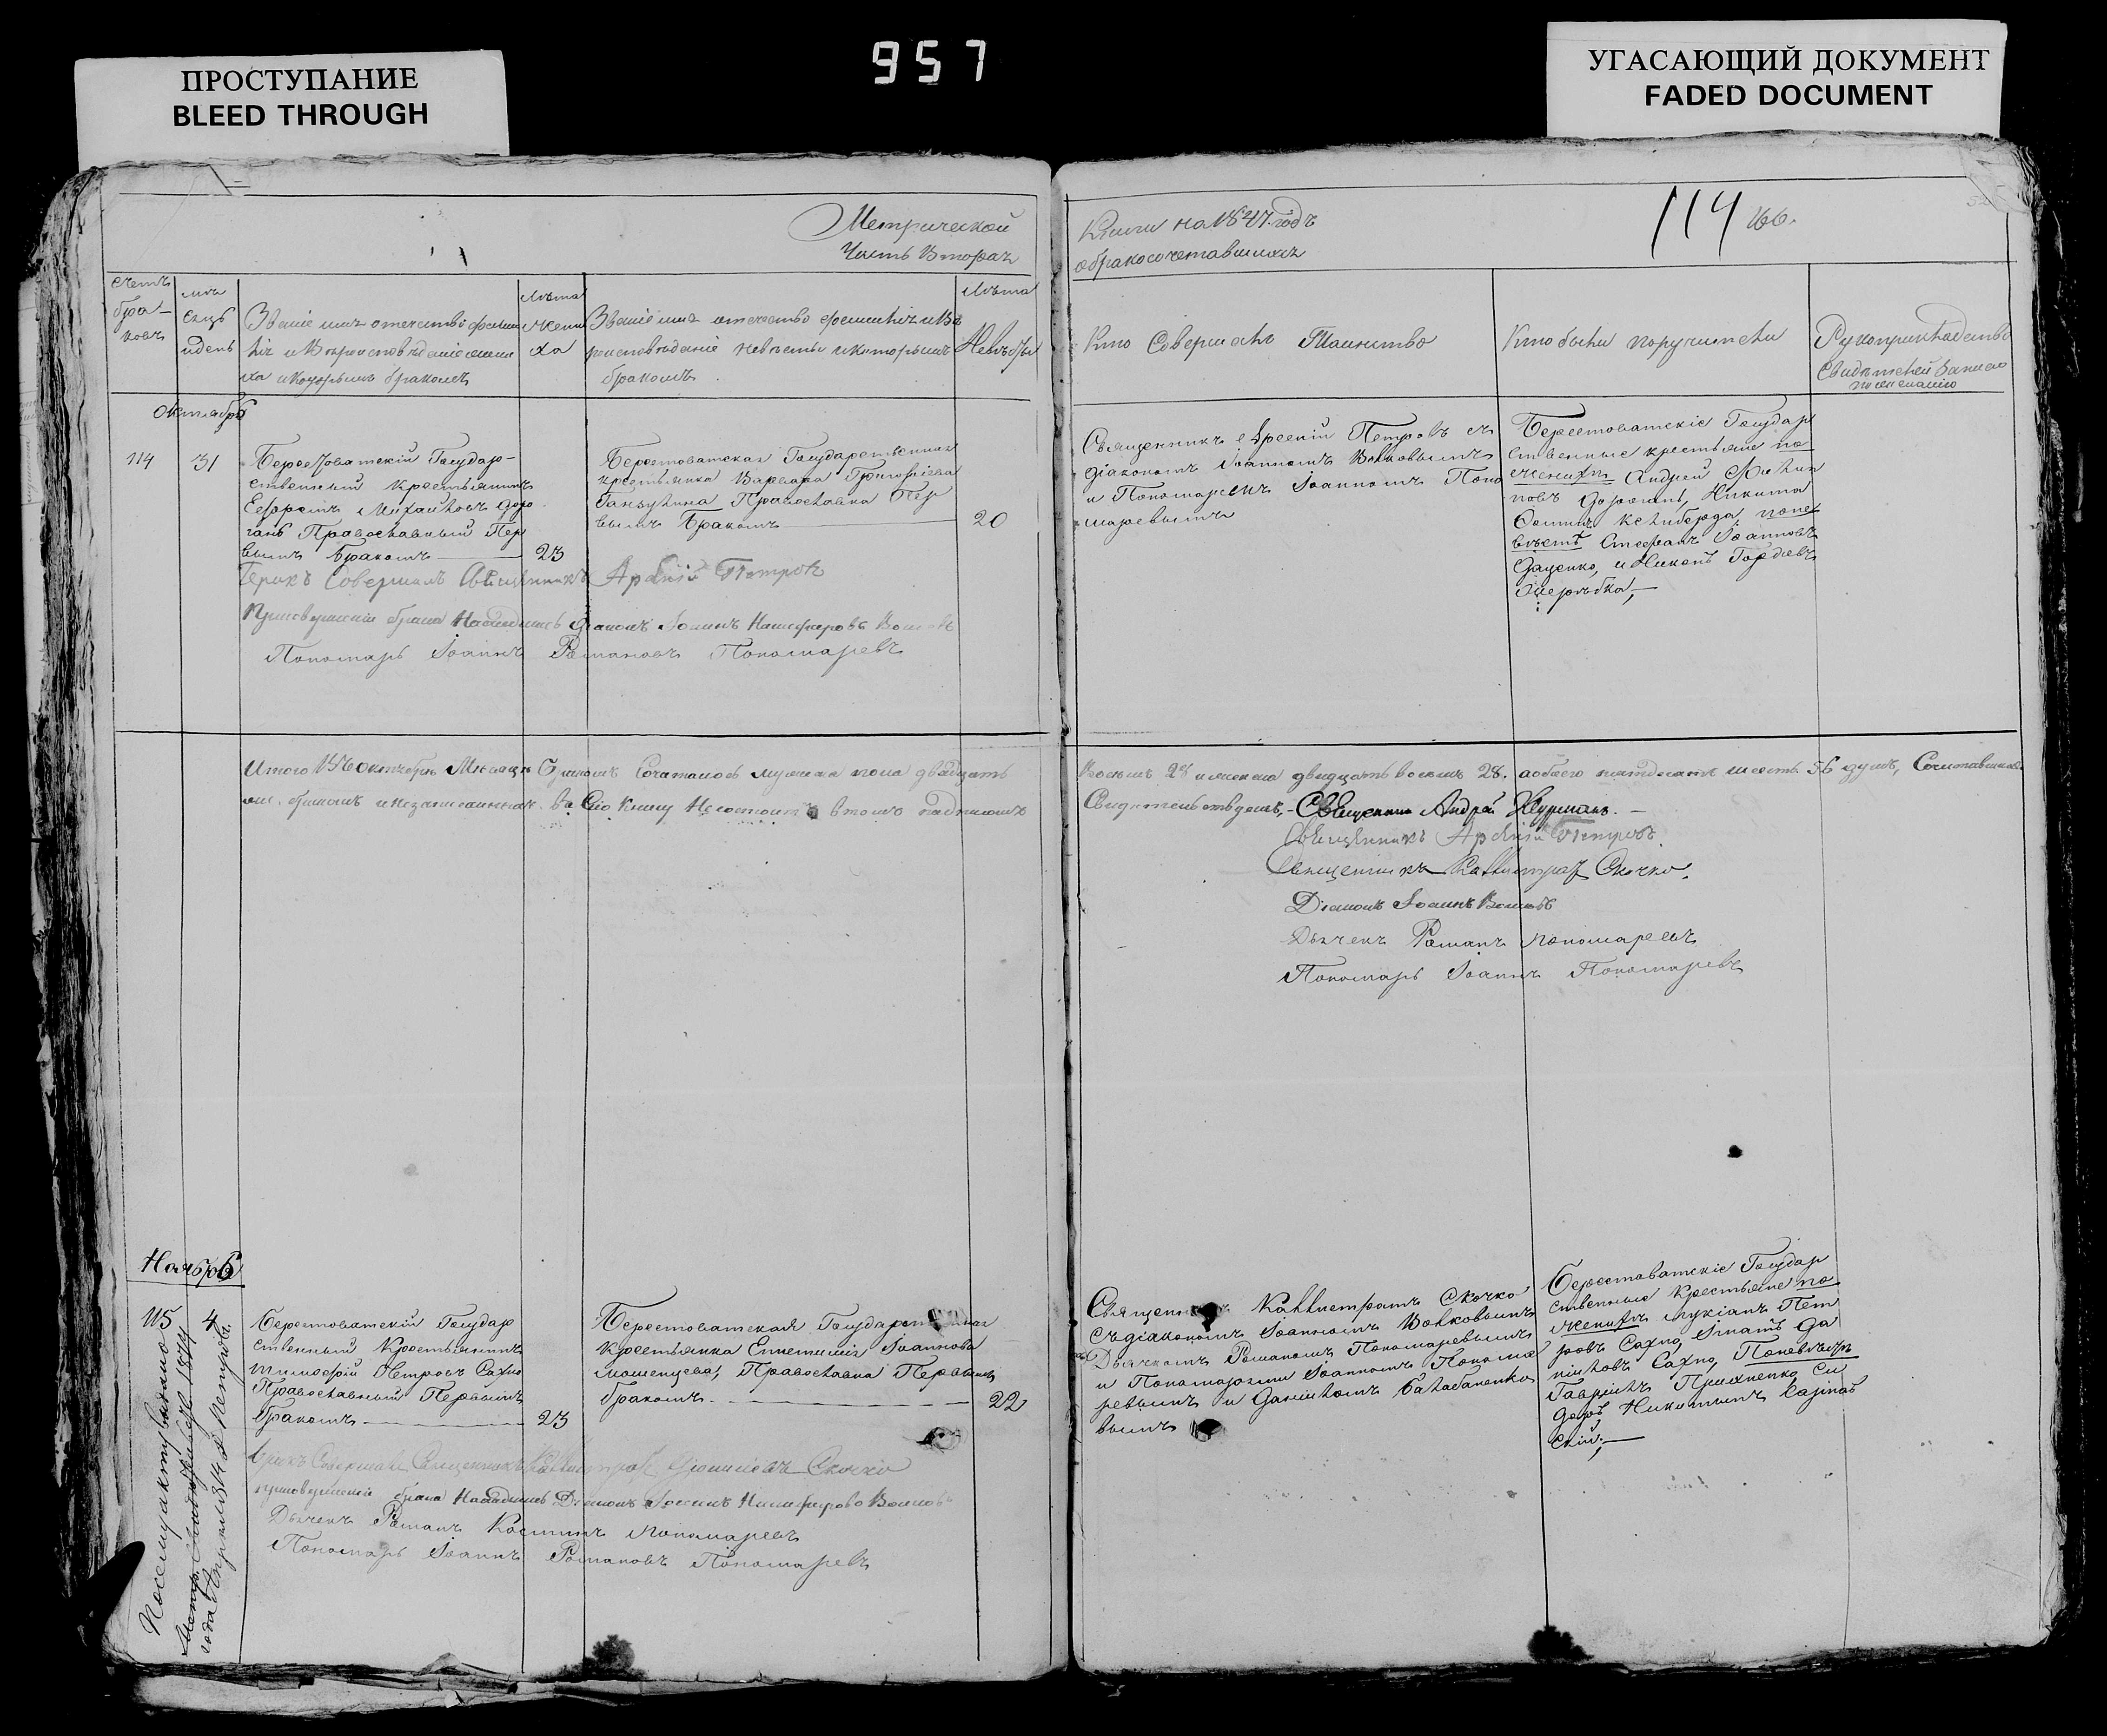 ПРОСТУПАНИЕ
BLEED THROUGH
957
УГАСАЮЩИЙ ДОКУМЕНТ
FADED DOCUMENT
Метрической
Часть Вторая
Книги на 1847 годъ
о бракосочетавшихся
114
166.
счетъ
бра-
ковъ
мѣ
сяцъ
и день
Званіе имя отечество фамил
ія и Вѣроисповѣданіе жени
ха и которымъ бракомъ
Лѣта
жени
ха
Званіе имя отечество фамилія и Вѣ
роисповѣданіе невѣсты и которымъ
бракомъ
Лѣта
Невѣсты
Кто Совершалъ Таинство
Кто были поручители
Рукоприкладство
Свидѣтелей Записи
по желанію
Октября
114
31
Берестоватскій Государ-
ственный крестьянинъ
Ефремъ Михайловъ Доро
ганъ Православный Пер
вымъ бракомъ
23
Берестоватская Государственная
крестьянка Варвара Григоріева
Православна Пер
вымъ Бракомъ
20
Священникъ Арсеній Петровъ съ
діакономъ Іоанномъ Волковымъ
и Пономаремъ Іоанномъ Поно
маревымъ
Берестоватскіе Государ
ственные крестьяне по
женихѣ Андрей
новъ Дороганъ, Никита
Ѳоминъ Келиберда, поне
вѣстѣ Стефанъ Іоанновъ
Даценко, и Никонъ Гордѣевъ
Бракъ Совершалъ Священникъ Арсеній Петровъ
При совершеніи брака Находились Діаконъ Іоаннъ Никифоровъ Волковъ
Пономарь Іоаннъ Романовъ Пономаревъ
Итого Въ Октябрѣ Мѣсяцѣ Бракомъ Сочеталось мужеска пола двадцать
восемь 28 и женска двадцать восемь 28. а обоего пятдесятъ шесть 56 душъ, Сочетавшихся
бракомъ и незаписанныхъ въ Сію Книгу Несостоитъ в томъ надлежащѣ
Свидѣтельствуемъ, - Священникъ Андрей
Священникъ Арсеній Петровъ.
Священникъ Каллистратъ Скочко.
Діаконъ Іоаннъ Волковъ
Дьячекъ Романъ Пономаревъ
Пономарь Іоаннъ Пономаревъ
Ноября
115
4
Берестоватскій Государ
ственный Крестьянинъ
Тимофей Петровъ Сахно
Православный Первымъ
бракомъ
23
Берестоватская Государственная
Крестьянка Евфимія Іоаннова
Православна Первымъ
бракомъ
22
Священникъ Каллистратъ Скочко
съ діакономъ Іоанномъ Волковымъ
Дьячкомъ Романомъ Пономаревымъ
и Пономарями Іоанномъ Понома
ревымъ и Даніиломъ Балабаненко
вымъ
Берестоватскіе Государ
ственные Крестьяне по
женихѣ Лукіанъ Пет
ровъ Сахно, Игнатъ Да
ніиловъ Сахно, Поневѣстѣ
Гавріилъ Прихненко Си
доръ Никитинъ
скій;
Бракъ Совершалъ Священникъ Каллистратъ Діонисіевъ Скочко
при совершеніи брака Находились Діаконъ Іоаннъ Никифоровъ Волковъ
Дьячекъ Романъ Косминъ Пономаревъ
Пономарь Іоаннъ Романовъ Пономаревъ
По сему акту выдано